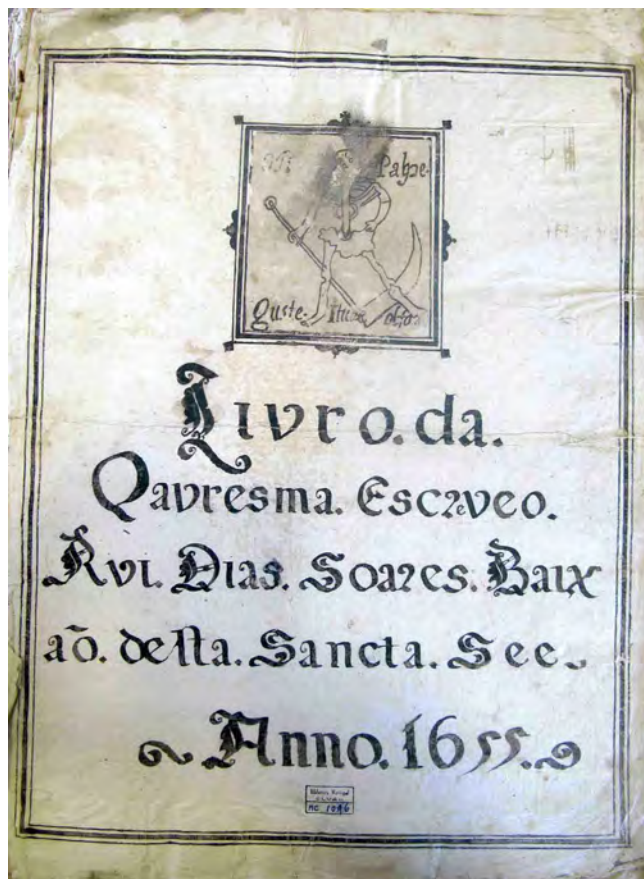 Pahre.
Guste. Ittur
Livro.da.
Qavresma. Escreveo.
Rvi. Dias. Soares. Baix
aõ. desta. Sancta. See
Anno. 1655.
MC 1086